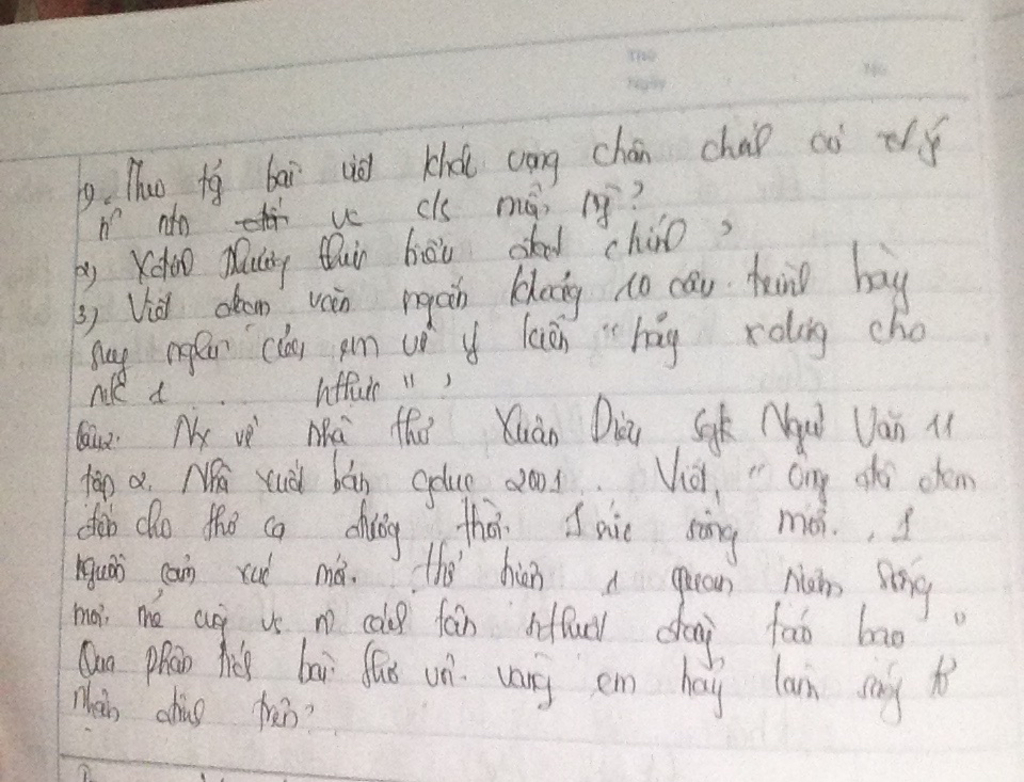 Thứ
Ngày
No
1, Theo tg bài viết khát vọng chân chính có
vs c/s
2) Xđịnh Phương thức biểu đạt chính ?
3) Viết đoạn văn ngắn khoảng 10 câu trình bày
suy nghĩ của em về ý kiến "hãy xdựng cho
1 .. "
Câu2. Nx về nhà thơ Xuân Diệu Sgk Ngữ Văn 11
tập 2. Nhà xuất bản gduc 2001.. Viết, " ông đã đem
đến cho thơ ca đương thời. 1 sức sống mới. , 1
nguồn cảm xúc mới. thể hiện 1 quan niệm sống
mới mẻ cùng vs n cách tân nthuật đầy táo bạo "
Qua phân tích bài thơ vội vàng em hãy làm sáng tỏ
nhận định trên?